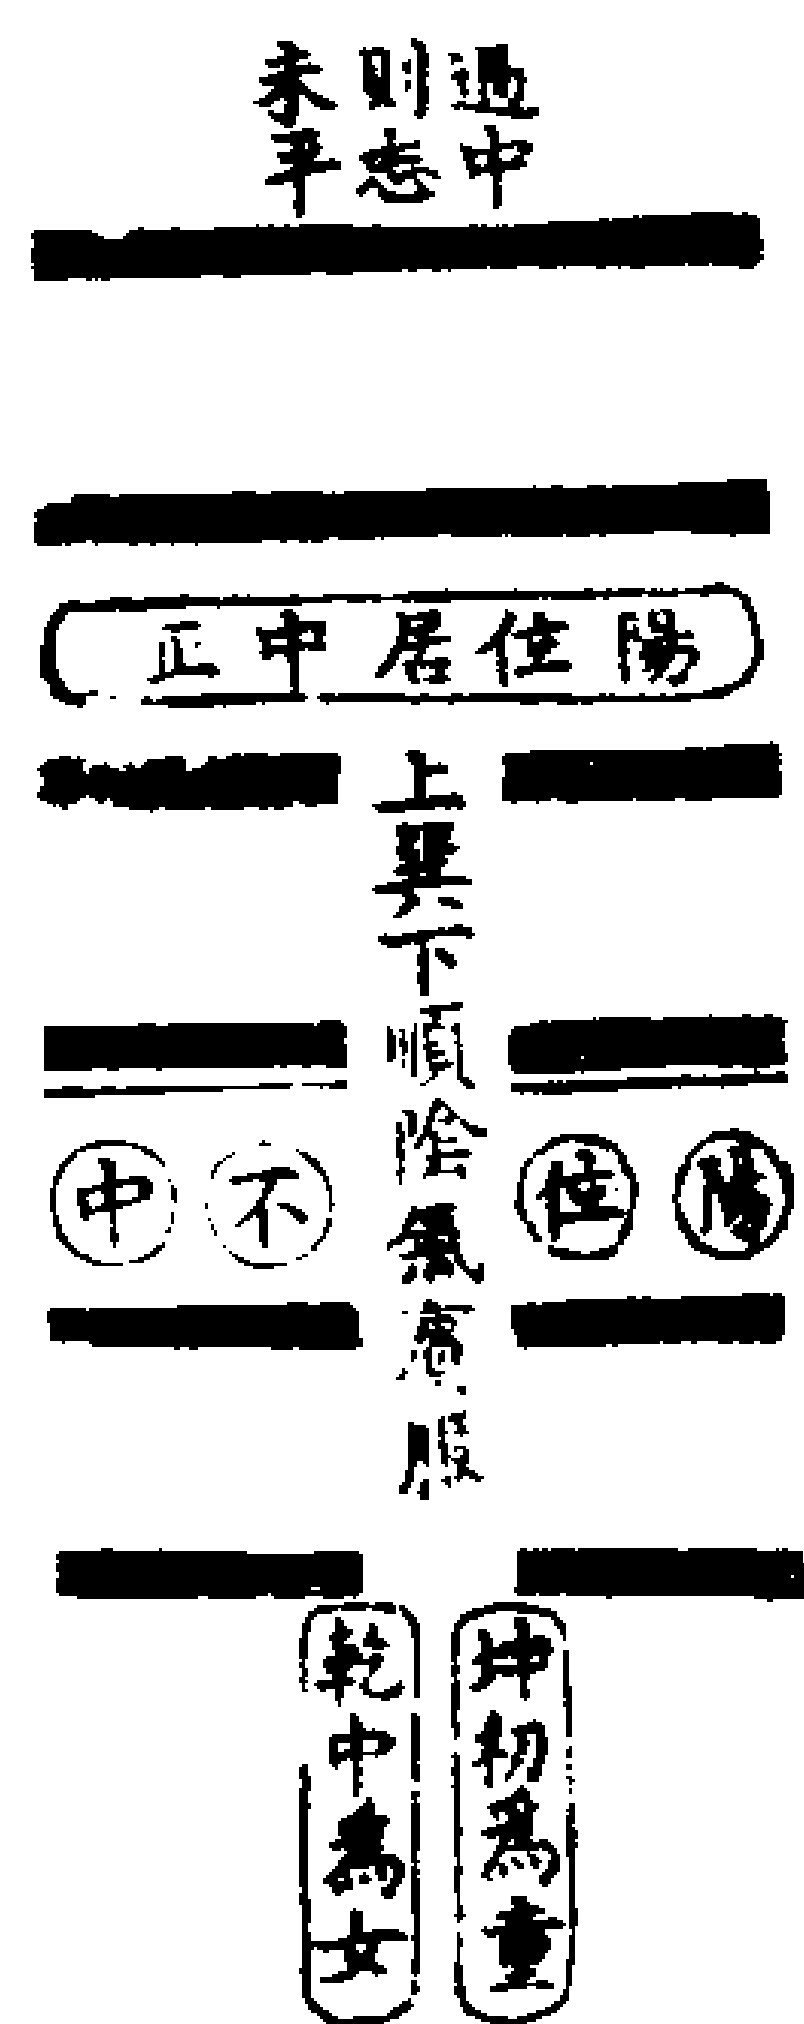 過中
則志
未平
陽位居中正
上巽下順陰氣賓服
陽位不中
坤初爲童
乾中為女